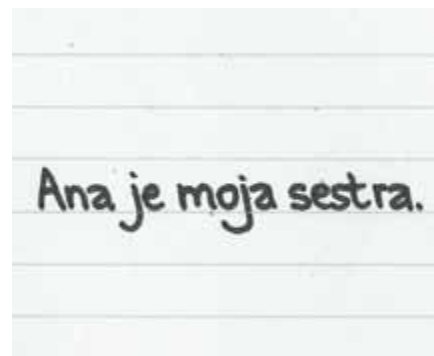 Ana je moja sestra.